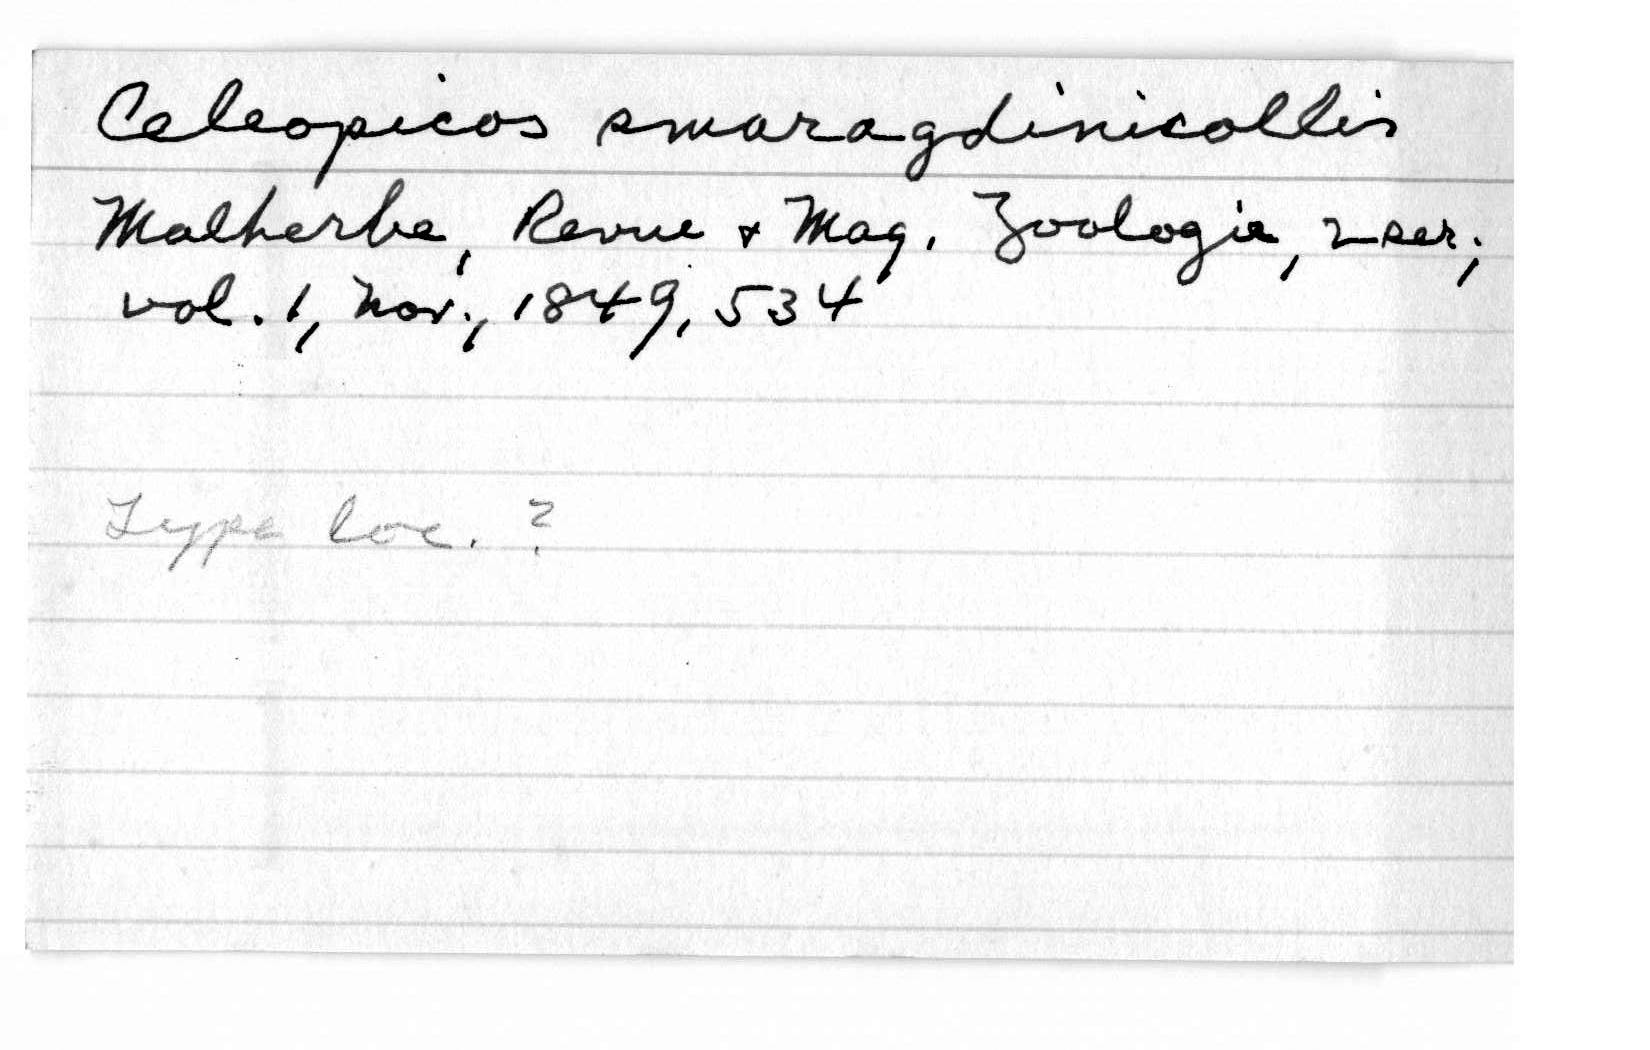 Celeopicos smaragdinicollis
Malherbe, Revue & Mag. Zoologie, 2 ser.,
vol. 1, Nov., 1849, 534
Type loc. ?